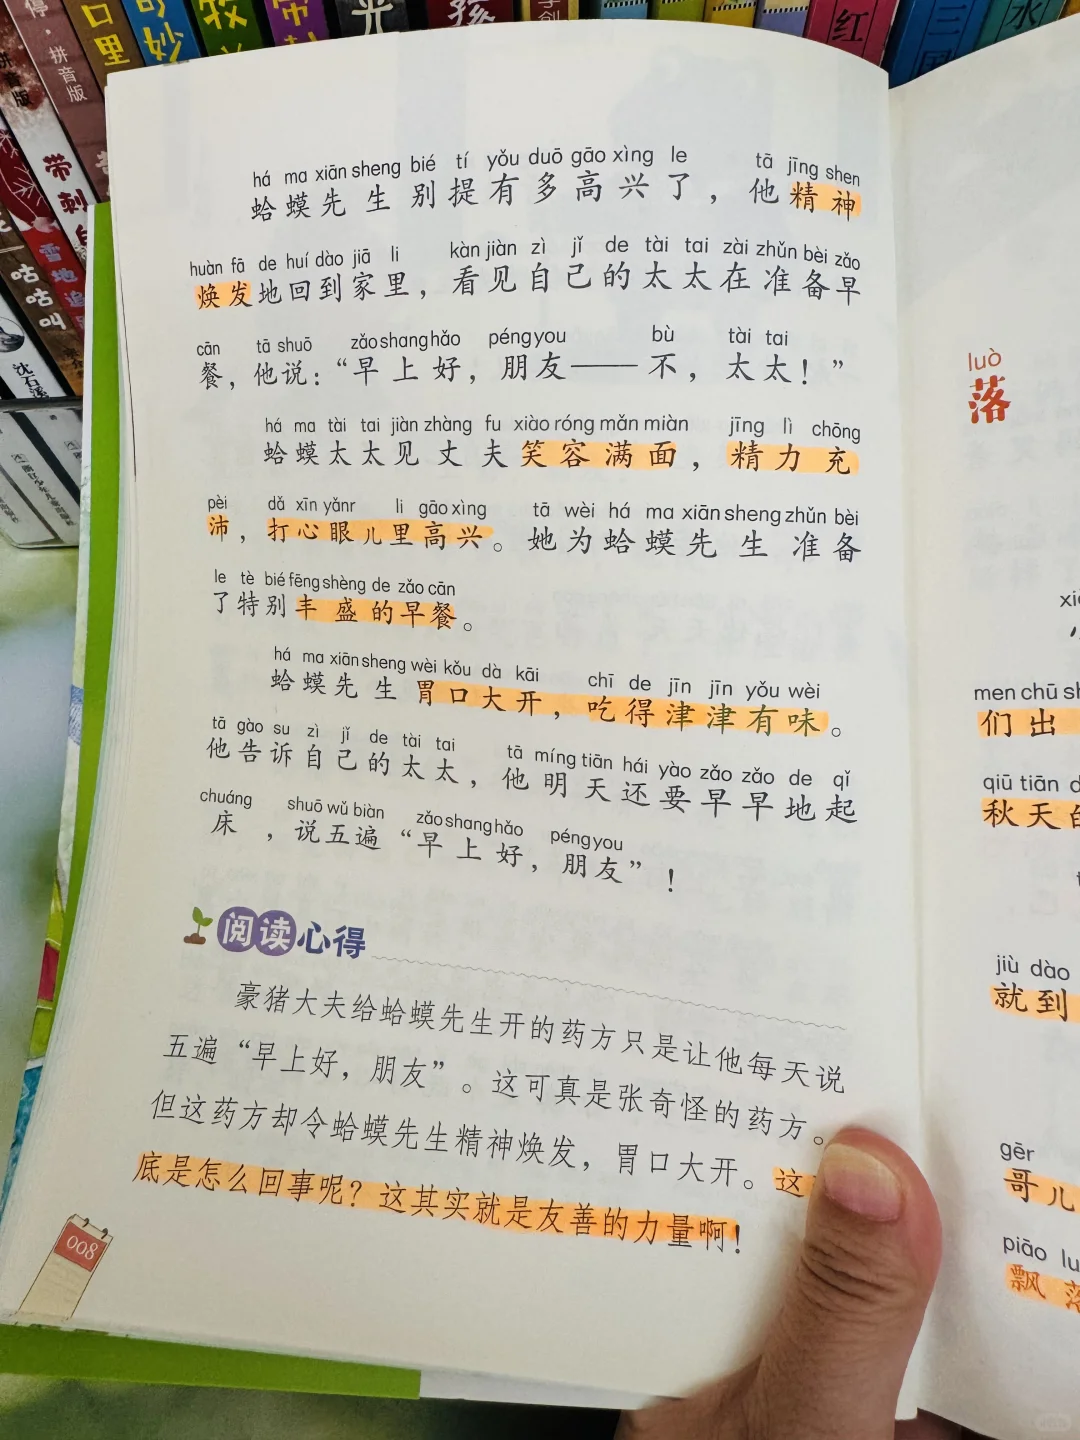 há ma xiān sheng bié tí yǒu duō gāo xìng le tā jīng shen
蛤蟆先生别提有多高兴了，他精神
huàn fā de huí dào jiā li kàn jiàn zì jǐ de tài tai zài zhǔn bèi zǎo
焕发地回到家里，看见自己的太太在准备早
cān tā shuō zǎo shang hǎo péng you bù tài tai
餐，他说：“早上好，朋友——不，太太！”
há ma tài tai jiàn zhàng fu xiào róng mǎn miàn jīng lì chōng
蛤蟆太太见丈夫笑容满面，精力充
pèi dǎ xīn yǎnr li gāo xìng tā wèi há ma xiān sheng zhǔn bèi
沛，打心眼儿里高兴。她为蛤蟆先生准备
le tè bié fēng shèng de zǎo cān
了特别丰盛的早餐。
há ma xiān sheng wèi kǒu dà kāi chī de jīn jīn yǒu wèi
蛤蟆先生胃口大开，吃得津津有味。
tā gào su zì jǐ de tài tai tā míng tiān hái yào zǎo zǎo de qǐ
他告诉自己的太太，他明天还要早早地起
chuáng shuō wǔ biàn zǎo shang hǎo péng you
床，说五遍“早上好，朋友”！
阅读心得
豪猪大夫给蛤蟆先生开的药方只是让他每天说
五遍“早上好，朋友”。这可真是张奇怪的药方。
但这药方却令蛤蟆先生精神焕发，胃口大开。这
底是怎么回事呢？这其实就是友善的力量啊！
008
luò
落
men chū
们出
qiū tiān
秋天
jiù dào
就到
gēr
哥儿
piāo
飘落
口里
红
三国
水
孩
光
拼音版
拼音版
带刺
雪地
咕咕叫
沈石溪